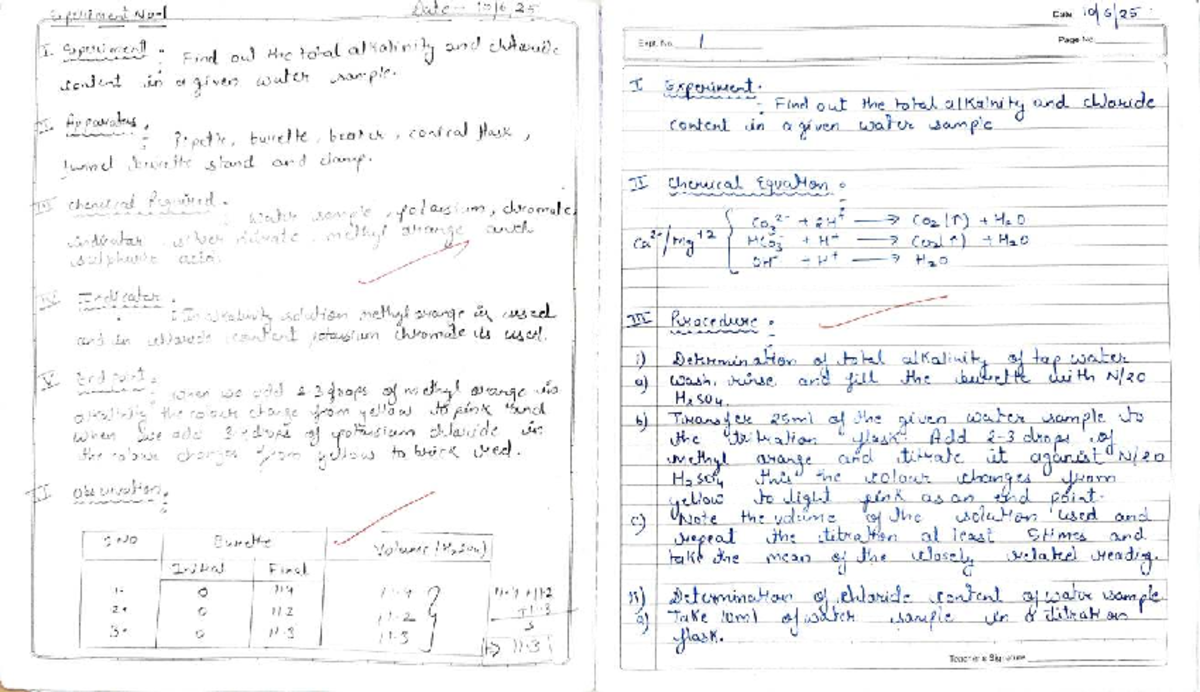 Experiment No-1
Date - 10/6/25
I. Experiment : Find out the total alkalinity and chloride
content in a given water sample.
II. Apparatus : Pipette, burette, beaker, conical flask,
funnel, burette stand and clamp.
III Chemical Required : Water sample, potassium, chromate,
indicator, silver nitrate, methyl orange and
sulphuric acid.
IV Indicator : In alkalinity solution methyl orange is used
and in chloride content potassium chromate is used.
V End point : When we add 2-3 drops of methyl orange in
alkalinity the colour change from yellow to pink and
when we add drops of potassium chloride in
the colour changes from yellow to brick red.
observation:
S.NO Burette Volume (H2SO4)
Initial Final
1. 0 11.4 11.4
2. 0 11.2 11.2
3. 0 11.3 11.3
11.4 + 11.2
+ 11.3
3
=> 11.3
Date 10/6/25
Expt. No. 1
Page No.
I Experiment : Find out the total alkalinity and chloride
content in a given water sample
II Chemical Equation :
Ca2+/Mg+2
CO3 2- + 2H+ → CO2(↑) + H2O
HCO3- + H+ → CO2(↑) + H2O
OH- + H+ → H2O
III Procedure :
i) Determination of total alkalinity of tap water
a) Wash, rinse and fill the burette with N/20
H2SO4.
b) Transfer 25ml of the given water sample to
the titration flask. Add 2-3 drops of
methyl orange and titrate it aganist N/20
H2SO4 this the colour changes from
yellow to light pink as an end point.
c) Note the volume of the solution used and
repeat the titration at least 5times and
take the mean of the closely related reading.
ii) Determination of chloride content of water sample
a) Take 10ml of water sample in a titration
flask.
Teacher's Signature